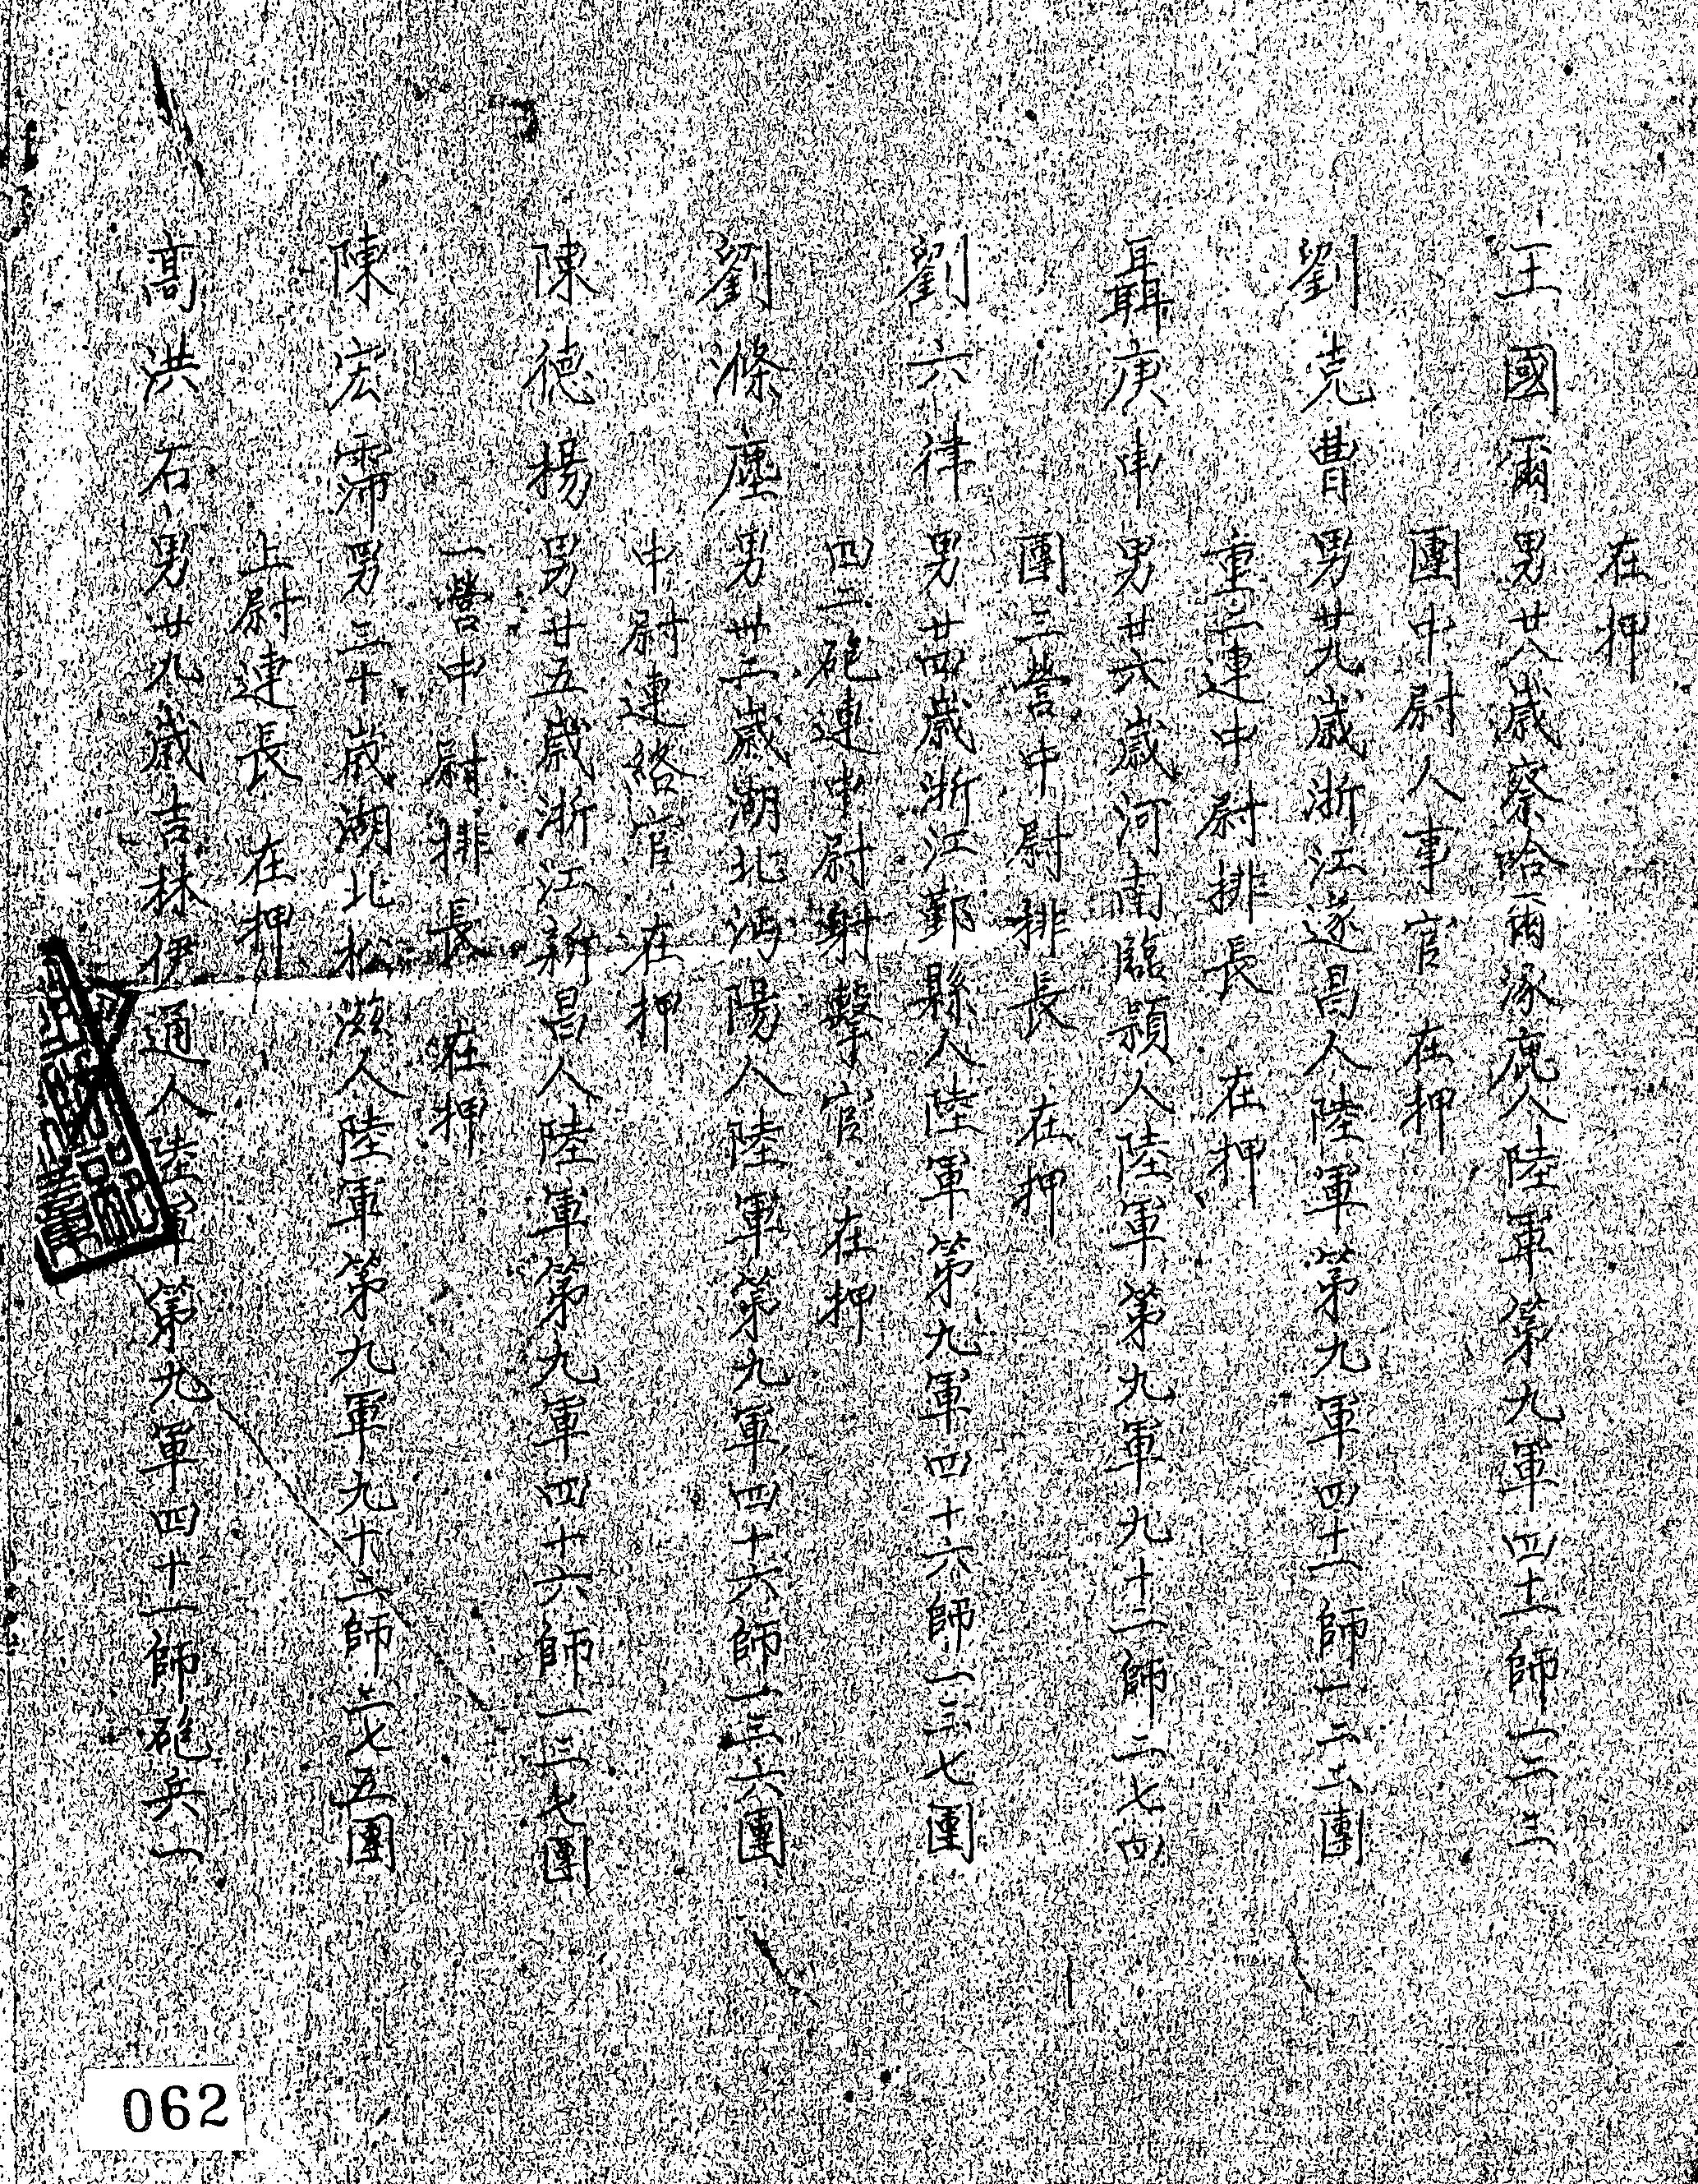 在押
王國爾男廿八歲察哈爾涿鹿人陸軍第九軍四十一師一二三
團中尉人事官 在押
劉克曹男廿九歲浙江遂昌人陸軍第九軍四十一師一二二團
重二連中尉排長 在押
聶庚申男廿六歲河南臨潁人陸軍第九軍九十二師二七四
團三營中尉排長 在押
劉六律男廿四歲浙江鄞縣人陸軍第九軍四十六師一三七團
四二砲連中尉射擊官 在押
劉滌塵男卅二歲湖北沔陽人陸軍第九軍四十六師一三六團
中尉連絡官 在押
陳德揚男廿五歲浙江新昌人陸軍第九軍四十六師一三七團
一營中尉排長 在押
陳宏霈男三十歲湖北松滋人陸軍第九軍九十二師二七五團
上尉連長 在押
高洪石男廿九歲吉林伊通人陸軍第九軍四十一師砲兵一
062